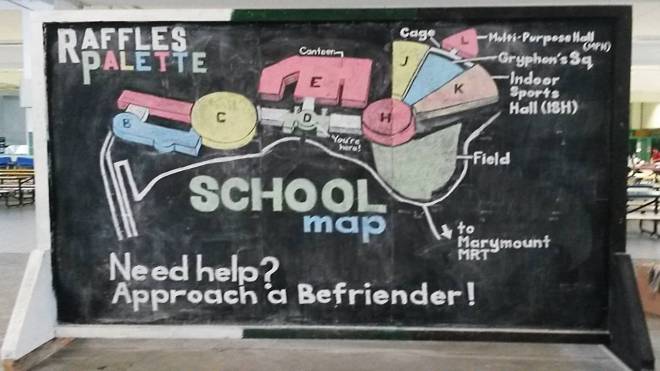 RAFFLES
PALETTE
Canteen
Cage
L
Multi-Purpose Hall
(MPH)
J
Gryphon's Sq
E
K
Indoor
Sports
Hall (ISH)
B
C
D
H
You're
here!
Field
SCHOOL
map
to
Marymount
MRT
Need help?
Approach a Befriender!